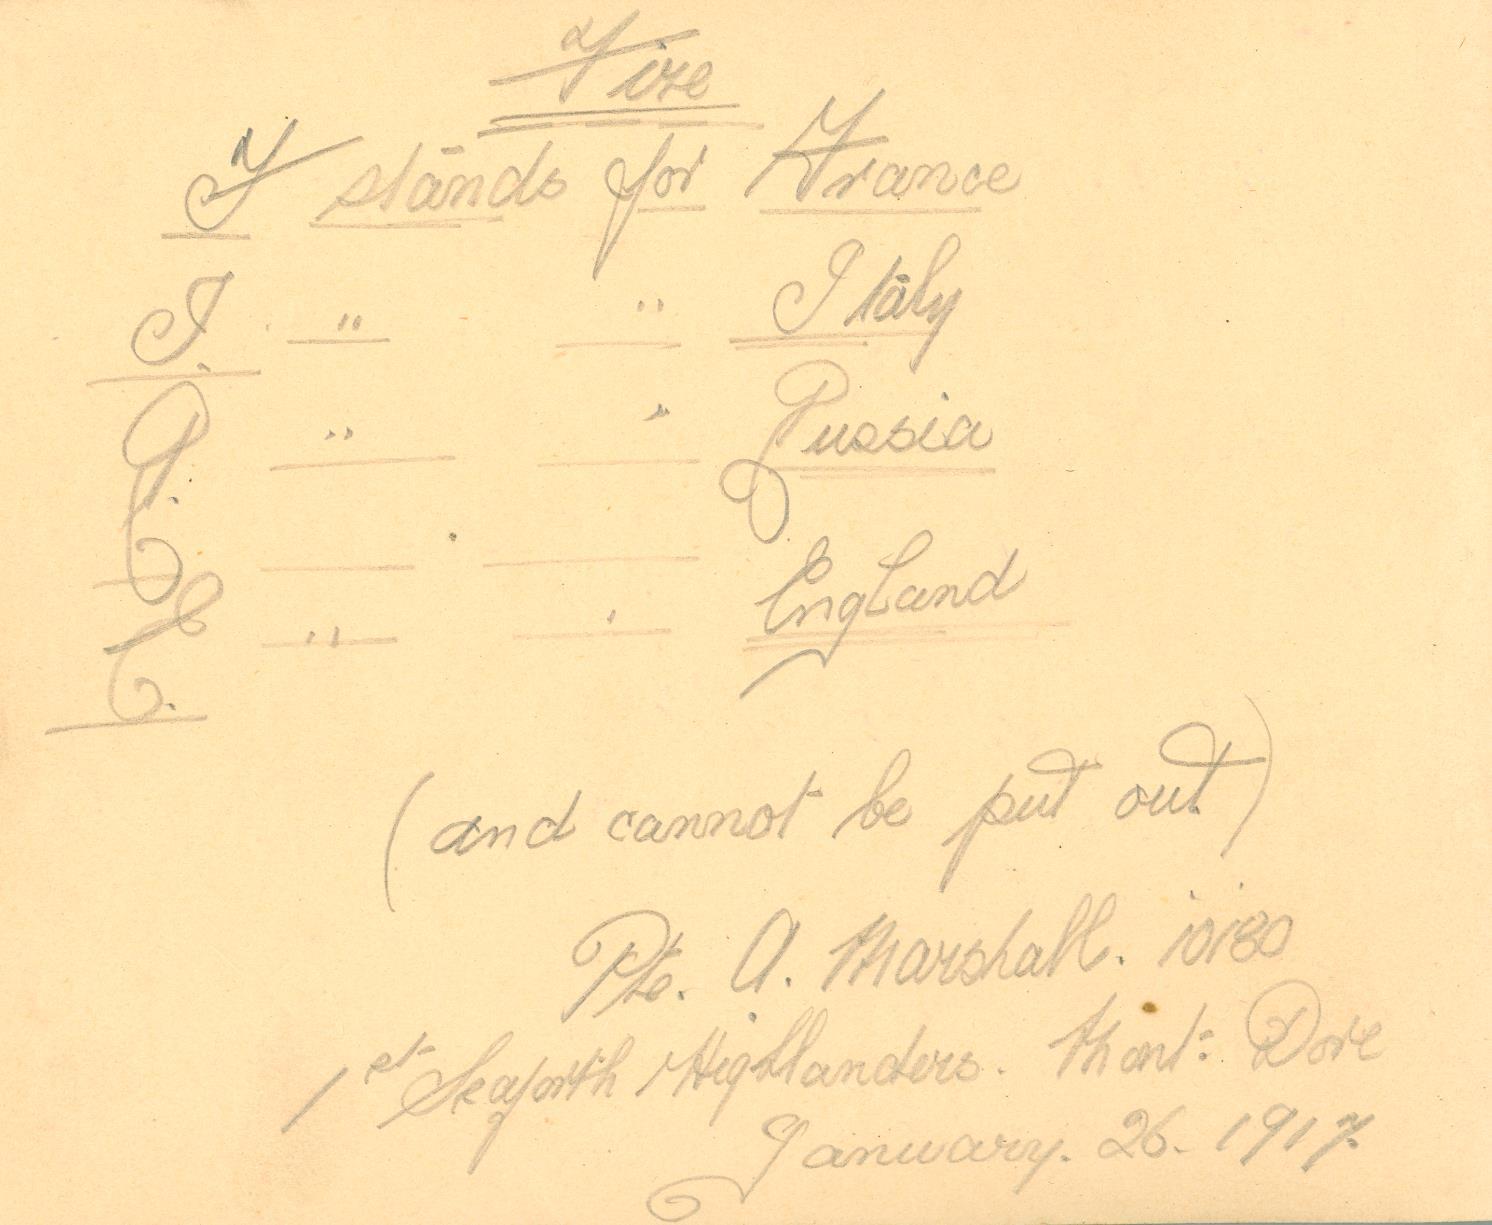 Fire
F stands for France
I. " " Italy
R. " " Russia
E. " " England
(and cannot be put out)
Pte. A. Marshall. 10180
1st Seaforth Highlanders. Mont: Dore
January. 26. 1917.